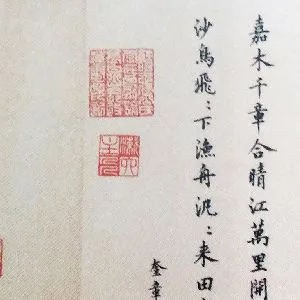 嘉木千章合晴江萬里開
沙鳥飛〻下漁舟汎〻来田
奎章